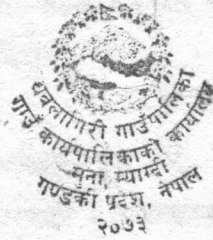 धवलागिरी गाउँपालिका
गाउँ कार्यपालिकाको कार्यालय
मुना, म्याग्दी
गण्डकी प्रदेश, नेपाल
२०७३